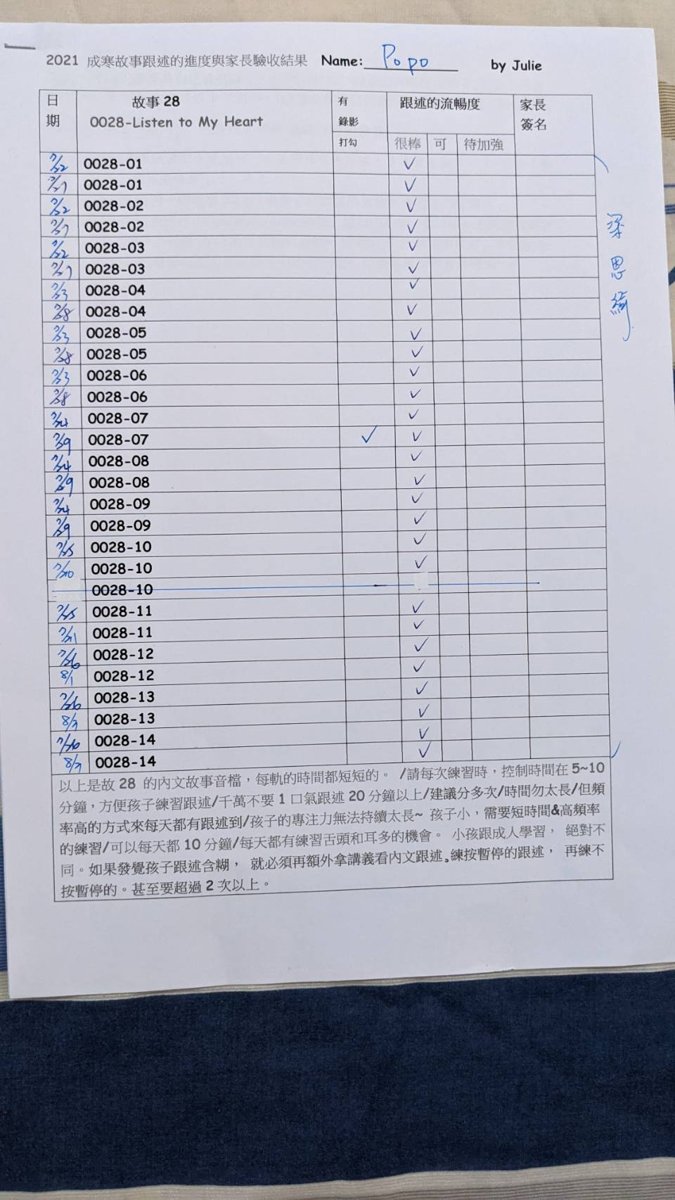 2021 成寒故事跟述的進度與家長驗收結果 Name: Popo by Julie
日期 故事 28 0028-Listen to My Heart 有錄影打勾 跟述的流暢度 家長簽名
很棒 可 待加強
7/22 0028-01 ✓
7/27 0028-01 ✓
7/22 0028-02 ✓
7/27 0028-02 ✓
7/22 0028-03 ✓
7/27 0028-03 ✓
7/23 0028-04 ✓
7/28 0028-04 ✓
7/23 0028-05 ✓
7/28 0028-05 ✓
7/23 0028-06 ✓
7/28 0028-06 ✓
7/24 0028-07 ✓
7/29 0028-07 ✓ ✓
7/24 0028-08 ✓
7/29 0028-08 ✓
7/24 0028-09 ✓
7/29 0028-09 ✓
7/25 0028-10 ✓
7/30 0028-10 ✓
0028-10
7/25 0028-11 ✓
7/31 0028-11 ✓
7/26 0028-12 ✓
8/1 0028-12 ✓
7/26 0028-13 ✓
8/1 0028-13 ✓
7/26 0028-14 ✓
8/1 0028-14 ✓
梁思綺
以上是故 28 的內文故事音檔，每軌的時間都短短的。 /請每次練習時，控制時間在 5~10
分鐘，方便孩子練習跟述/千萬不要 1 口氣跟述 20 分鐘以上/建議分多次/時間勿太長/但頻
率高的方式來每天都有跟述到/孩子的專注力無法持續太長~ 孩子小，需要短時間&高頻率
的練習/可以每天都 10 分鐘/每天都有練習舌頭和耳多的機會。 小孩跟成人學習， 絕對不
同。如果發覺孩子跟述含糊， 就必須再額外拿講義看內文跟述,練按暫停的跟述， 再練不
按暫停的。甚至要超過 2 次以上。